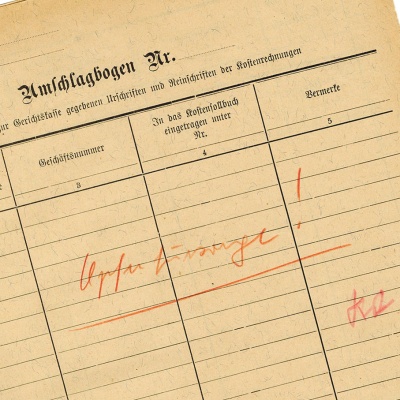 Umschlagbogen Nr.
zur Gerichtskasse gegebenen Urschriften und Reinschriften der Kostenrechnungen
Geschäftsnummer
In das Kostensollbuch
eingetragen unter
Nr.
Bermerke
3
4
5
Opferfürsorge!